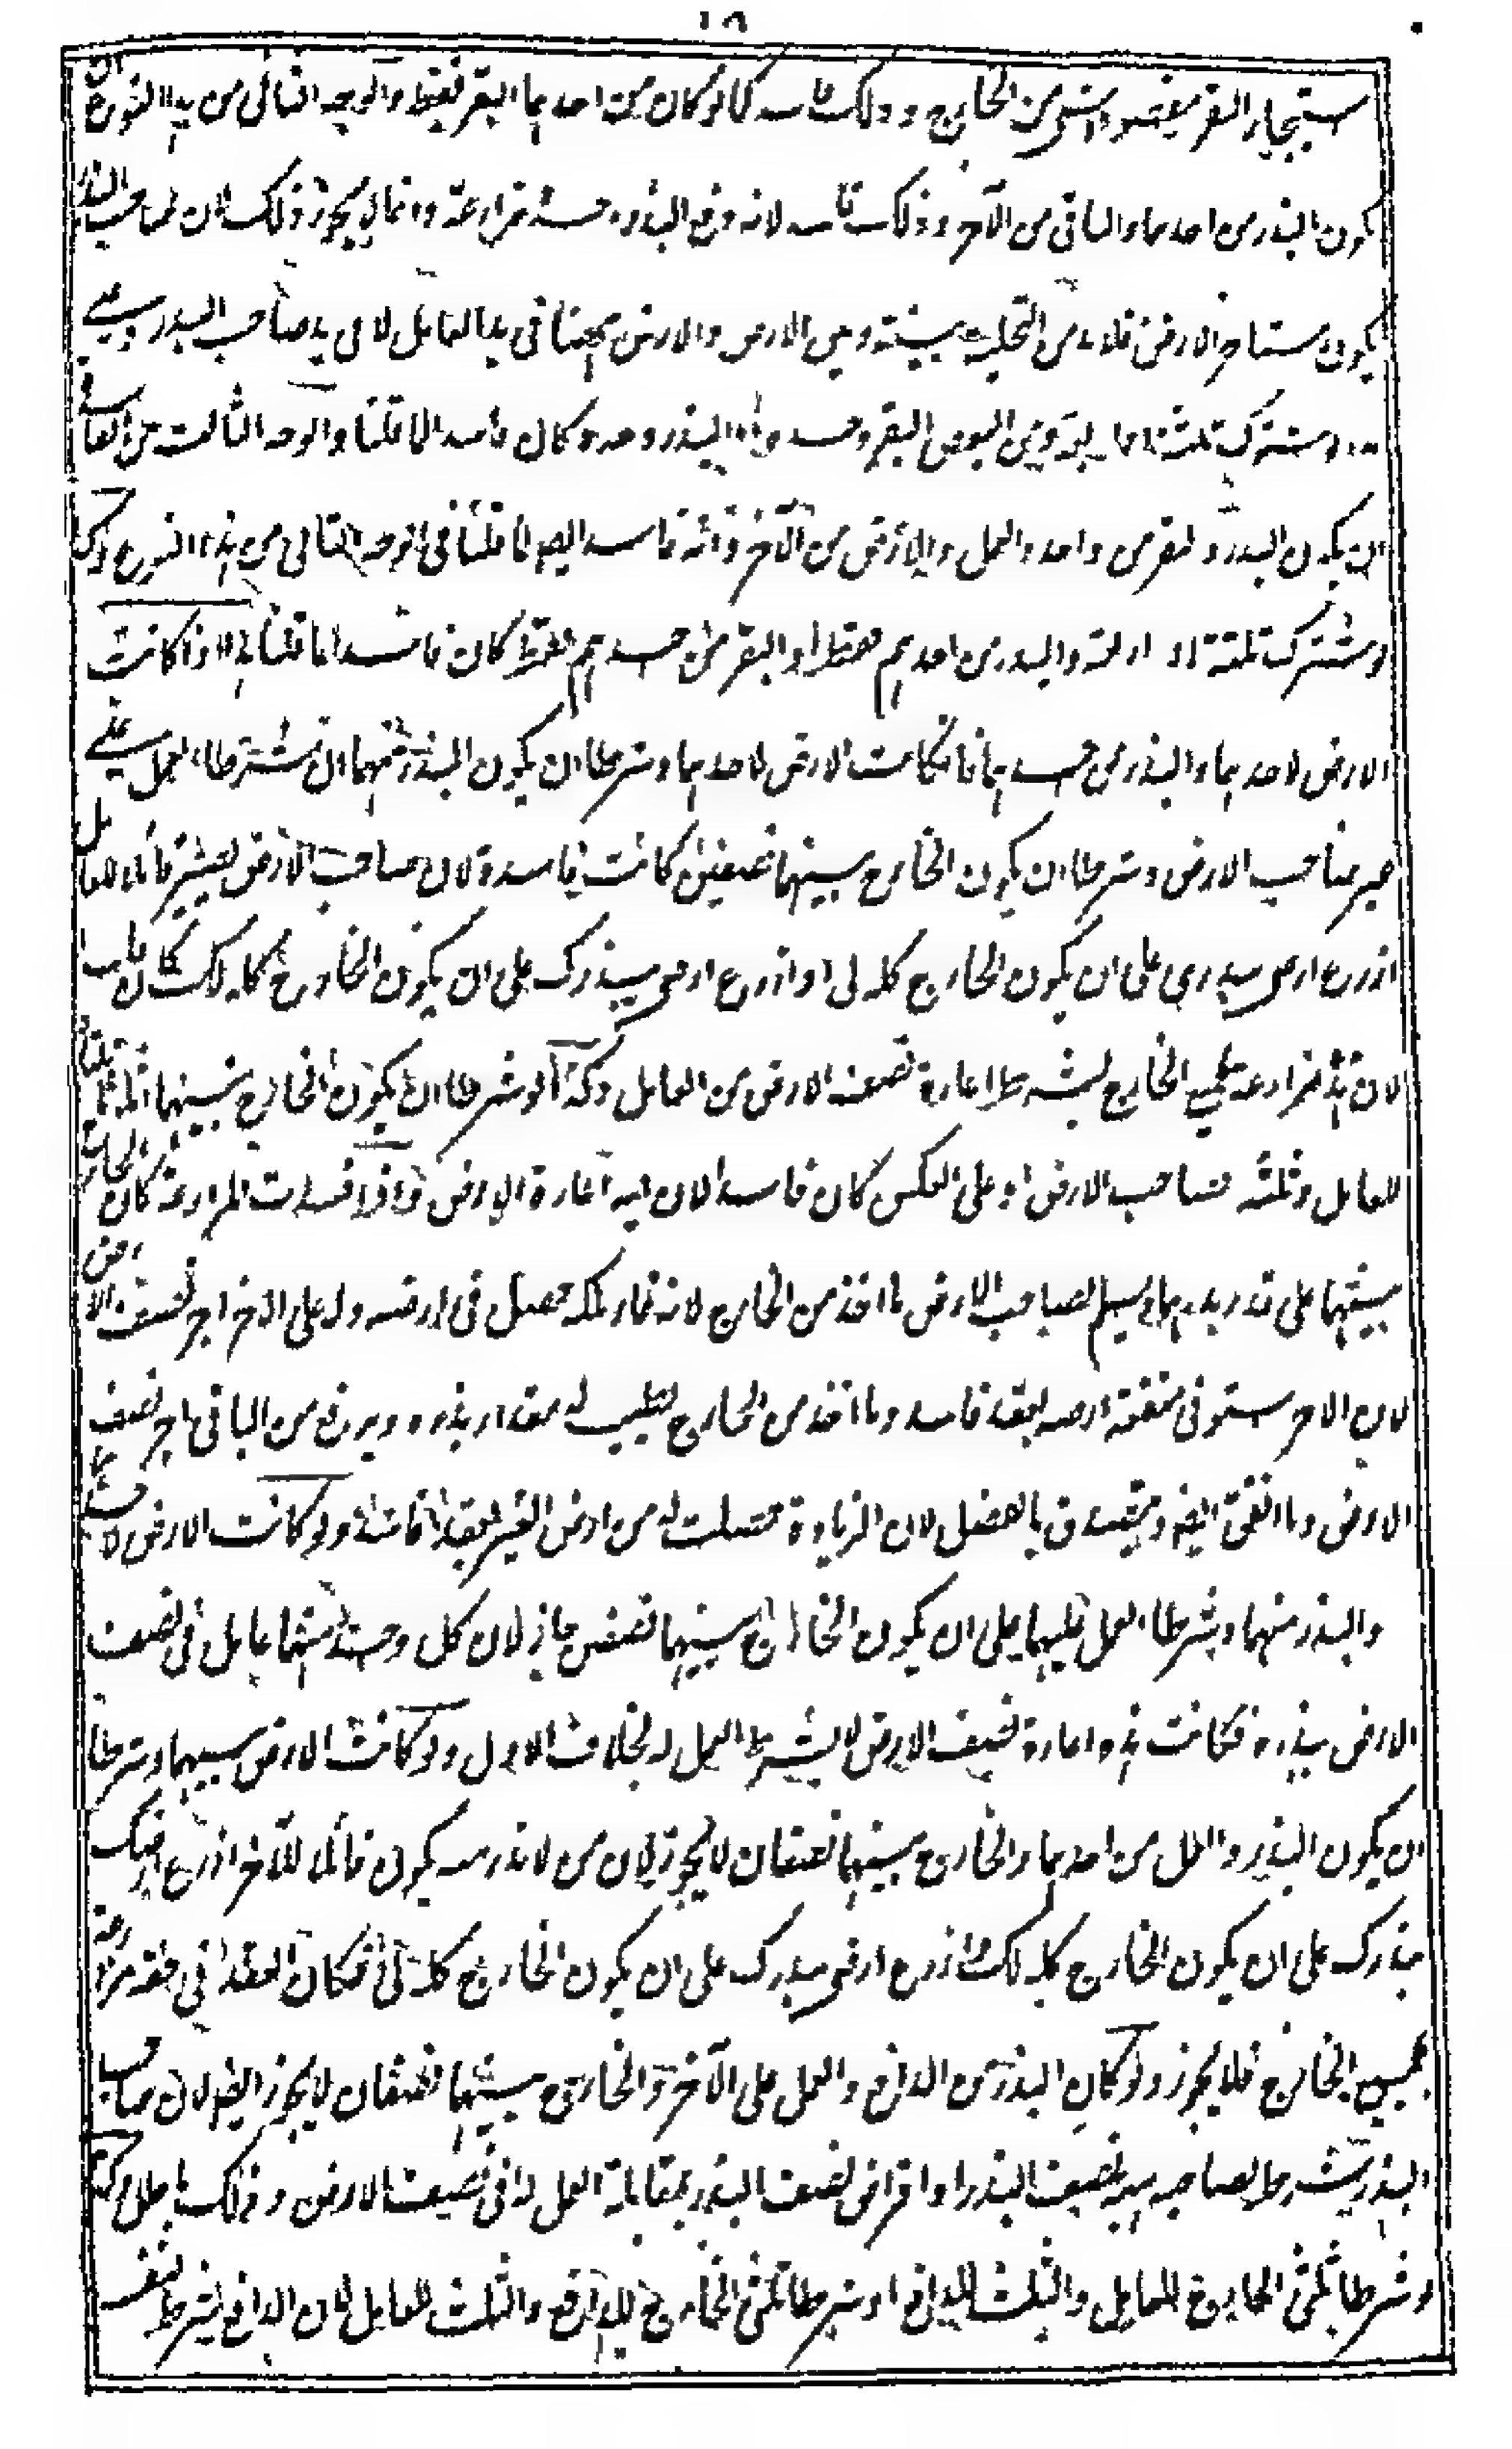 استيجار البقر مقصودا بشئ من الخارج وذلك فاسد كما لو كان من احدهما البقر فقط والوجه الثانى من هذا النوع ان
يكون البذر من احدهما والباقى من الآخر وذلك فاسد لانه دفع البذر وحده مزارعة وانما لا يجوز ذلك لان صاحب البذر
يكون مستاجر الارض فلا بد من التخلية بينه وبين الارض والارض ههنا فى يد العامل لا فى يد صاحب البذر وسعى
اشترك ثلثة او اربعة ومن البعض البقر وحده او البذر وحده كان فاسدا لما قلنا والوجه الثالث من الفاسد
ان يكون البذر والبقر من واحد والعمل والارض من الآخر وانه فاسد ايضا لما قلنا فى الوجه الثانى من هذا النوع وكذا
لو اشترك ثلثة او اربعة والبذر من احدهم فقط او البقر من احدهم فقط كان فاسدا لما قلنا هذا اذا كانت
الارض لاحدهما والبذر من احدهما فان كانت الارض لاحدهما وشرطا ان يكون البذر منهما ان شرطا العمل على
غير صاحب الارض وشرطا ان يكون الخارج بينهما نصفين كانت فاسدة لان صاحب الارض يصير قائلا للعامل
ازرع ارضى ببذرى على ان يكون الخارج كله لى او ازرع ارضى ببذرك على ان يكون الخارج كله لك كان فاسدا
لان هذه مزارعة بجميع الخارج بشرط اعارة نصف الارض من العامل وكذا لو شرطا ان يكون الخارج بينهما اثلاثا ثلثاه
للعامل وثلثه لصاحب الارض او على العكس كان فاسدا لان فيه اعارة الارض واذا فسدت المزارعة كان الخارج
بينهما على قدر بذرهما ويسلم لصاحب الارض ما اخذ من الخارج لانه نماء ملكه حصل فى ارضه وله على الآخر اجر نصف الارض
لان الآخر استوفى منفعة ارضه بعقد فاسد وما اخذ من الخارج يطيب له مقدار بذره ويرفع من الباقى اجر نصف
الارض وما انفق ايضا ويتصدق بالفضل لان الزيادة حصلت له من ارض الغير بعقد فاسد ولو كانت الارض لاحدهما
والبذر منهما وشرطا العمل عليهما على ان يكون الخارج بينهما نصفين جاز لان كل واحد منهما عامل فى نصف
الارض ببذره فكانت هذه اعارة نصف الارض لا بشرط العمل له بخلاف الاول ولو كانت الارض بينهما وشرطا
ان يكون البذر والعمل من احدهما والخارج بينهما نصفان لا يجوز لان من لا بذر منه يكون قائلا للآخر ازرع ارضك
ببذرك على ان يكون الخارج كله لك وازرع ارضى ببذرك على ان يكون الخارج كله لى فكان العقد فى حقه مزارعة
بجميع الخارج فلا يجوز ولو كان البذر من الدافع والعمل على الآخر والخارج بينهما نصفان لا يجوز ايضا لان صاحب
البذر شرط لصاحبه هبة نصف البذر او اقراض نصف البذر بمقابلة العمل له فى نصف الارض وذلك باطل وكذا
لو شرطا ثلثى الخارج للعامل والثلث للدافع او شرطا ثلثى الخارج للدافع والثلث للعامل لان الدافع يشترط لنفسه